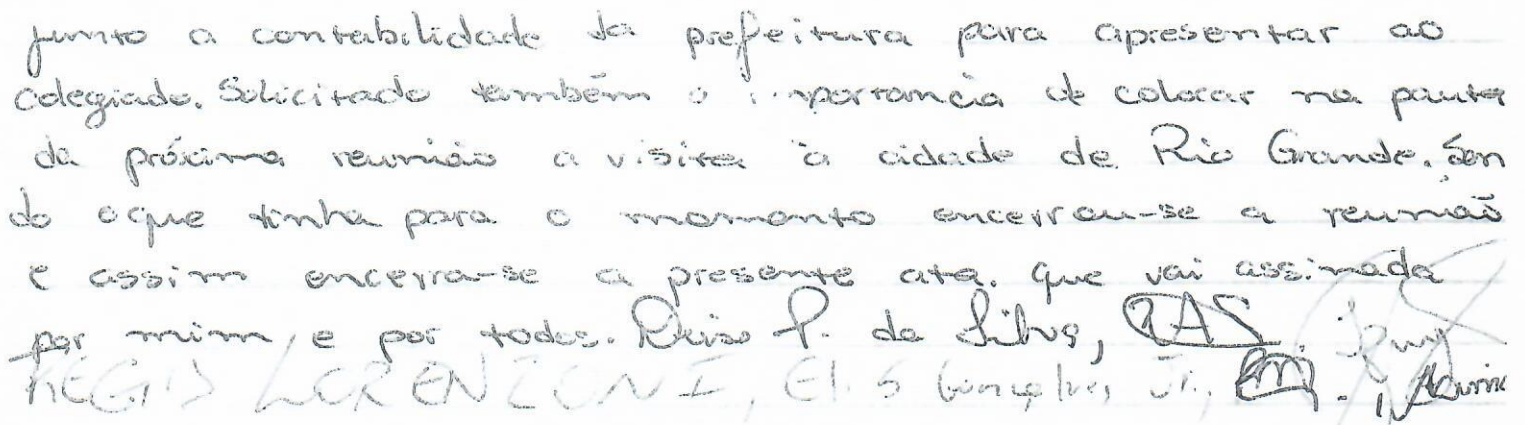 junto a contabilidade da prefeitura para apresentar ao
colegiado. Solicitado também a importancia de colocar na pauta
da próxima reunião a visita à cidade de Rio Grande. Sen
do oque tinha para o momento encerrou-se a reunião
e assim encerra-se a presente ata. que vai assinada
por mim, e por todos. P. da Silva,
REGIS LORENZONI, Gonçalves Jr.